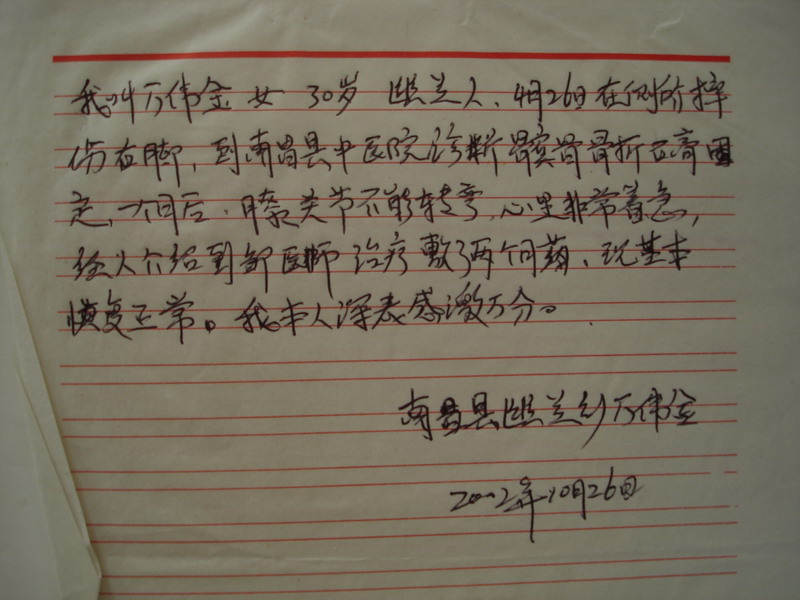 我叫万伟金 女 30岁 幽兰人、4月26日在倒价摔
伤右脚，到南昌县中医院诊断髌骨骨折石膏固
定，一个月后，膝关节不能转弯，心里非常着急，
经人介绍到邹医师治疗敷了两个月药、现基本
恢复正常。我本人深表感激万分。
南昌县幽兰乡万伟金
2002年10月26日